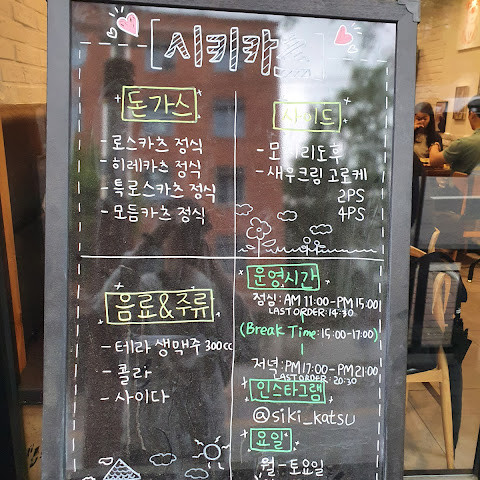 [시키카츠]
돈가스
- 로스카츠 정식
- 히레카츠 정식
- 특로스카츠 정식
- 모듬카츠 정식
사이드
- 모찌리도후
- 새우크림 고로케
2PS
4PS
음료&주류
- 테라 생맥주 300cc
- 콜라
- 사이다
운영시간
점심: AM 11:00-PM 15:00
LAST ORDER: 14:30
(Break Time: 15:00-17:00)
저녁: PM 17:00-PM 21:00
LAST ORDER: 20:30
인스타그램
@siki_katsu
요일
월-토요일